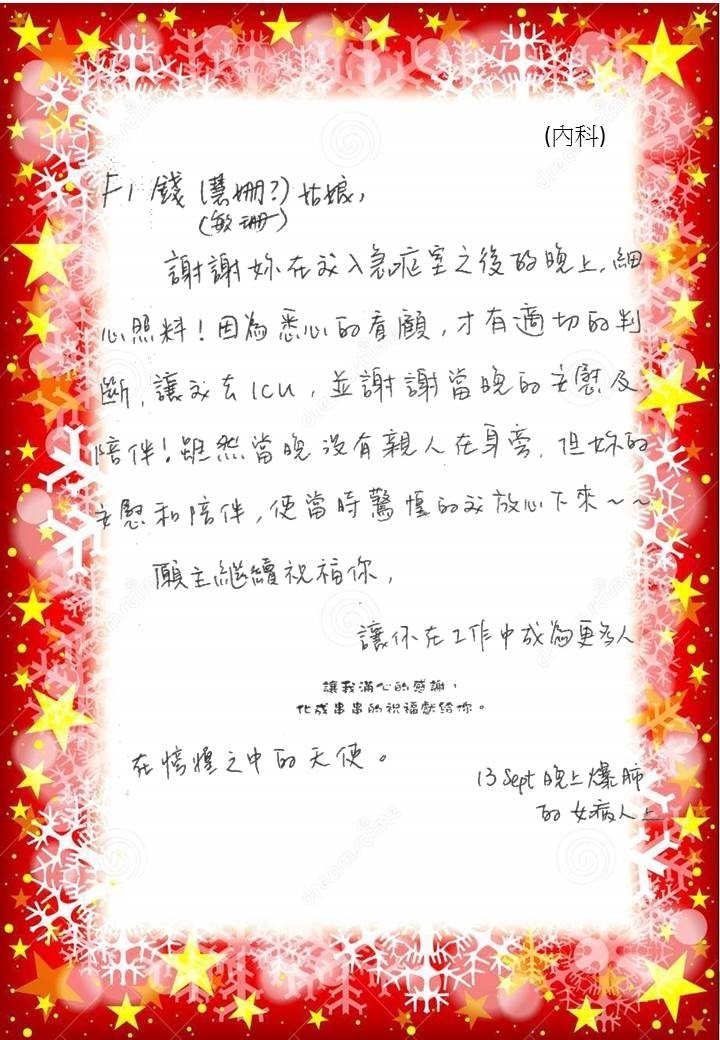 (內科)
F1 錢 (慧姍?) 姑娘,
(敏珊)
謝謝妳在我入急症室之後的晚上,細
心照料!因為悉心的看顧,才有適切的判
斷,讓我去ICU,並謝謝當晚的安慰及
陪伴!雖然當晚沒有親人在身旁,但妳的
安慰和陪伴,使當時驚惶的我放心下來~~
願主繼續祝福你,
讓你在工作中成為更多人
讓我滿心的感謝,
化成串串的祝福獻給你。
在惶惶之中的天使。
13 Sept 晚上爆肺
的女病人上